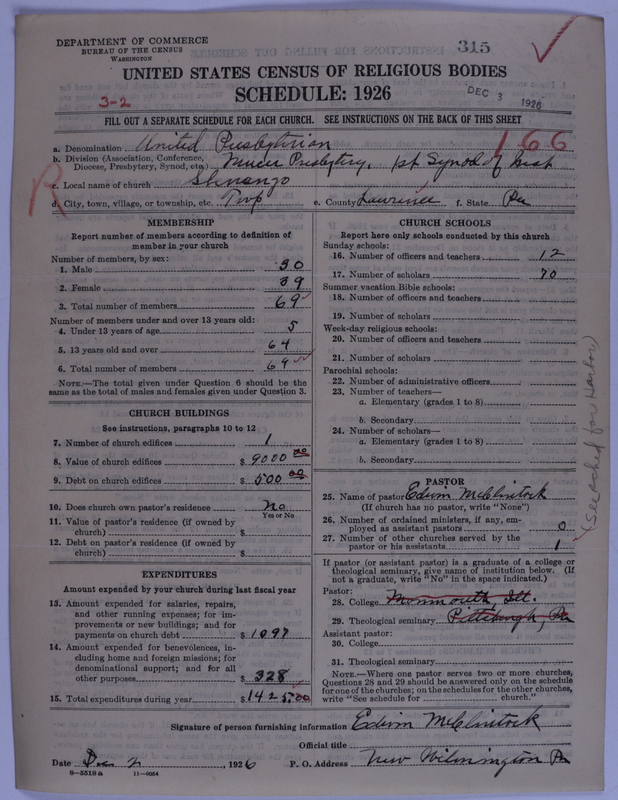 DEPARTMENT OF COMMERCE
BUREAU OF THE CENSUS
WASHINGTON
315
UNITED STATES CENSUS OF RELIGIOUS BODIES
SCHEDULE: 1926
DEC 3 1926
3-2
FILL OUT A SEPARATE SCHEDULE FOR EACH CHURCH. SEE INSTRUCTIONS ON THE BACK OF THIS SHEET
166
a. Denomination United Presbyterian
b. Division (Association, Conference, Diocese, Presbytery, Synod, etc.) Mercer Presbytery, 1st Synod of West
R
c. Local name of church Shenango
d. City, town, village, or township, etc. Twp e. County Lawrence f. State Pa
MEMBERSHIP
Report number of members according to definition of
member in your church
Number of members, by sex:
1. Male 30
2. Female 39
3. Total number of members 69
Number of members under and over 13 years old:
4. Under 13 years of age 5
5. 13 years old and over 64
6. Total number of members 69
NOTE.—The total given under Question 6 should be the
same as the total of males and females given under Question 3.
CHURCH BUILDINGS
See instructions, paragraphs 10 to 12
7. Number of church edifices 1
8. Value of church edifices $ 9000 00
9. Debt on church edifices $ 500 00
10. Does church own pastor's residence No
Yes or No
11. Value of pastor's residence (if owned by
church) $
12. Debt on pastor's residence (if owned by
church) $
EXPENDITURES
Amount expended by your church during last fiscal year
13. Amount expended for salaries, repairs,
and other running expenses; for im-
provements or new buildings; and for
payments on church debt $ 1097
14. Amount expended for benevolences, in-
cluding home and foreign missions; for
denominational support; and for all
other purposes $ 328
15. Total expenditures during year $ 1425.00
CHURCH SCHOOLS
Report here only schools conducted by this church
Sunday schools:
16. Number of officers and teachers 12
17. Number of scholars 70
Summer vacation Bible schools:
18. Number of officers and teachers
19. Number of scholars
Week-day religious schools:
20. Number of officers and teachers
21. Number of scholars
Parochial schools:
22. Number of administrative officers
23. Number of teachers—
a. Elementary (grades 1 to 8)
b. Secondary
24. Number of scholars—
a. Elementary (grades 1 to 8)
b. Secondary
PASTOR
25. Name of pastor Edwin McClintock
(If church has no pastor, write "None")
26. Number of ordained ministers, if any, em-
ployed as assistant pastors 0
27. Number of other churches served by the
pastor or his assistants 1
If pastor (or assistant pastor) is a graduate of a college or
theological seminary, give name of institution below. (If
not a graduate, write "No" in the space indicated.)
Pastor:
28. College Monmouth, Ill.
29. Theological seminary Pittsburgh, Pa
Assistant pastor:
30. College
31. Theological seminary
NOTE.—Where one pastor serves two or more churches,
Questions 28 and 29 should be answered only on the schedule
for one of the churches; on the schedules for the other churches,
write "See schedule for ________ church."
(See sched for Harbor)
Signature of person furnishing information Edwin McClintock
Official title
Date Dec 2, 1926 P. O. Address New Wilmington Pa
8—5518a 11—9064